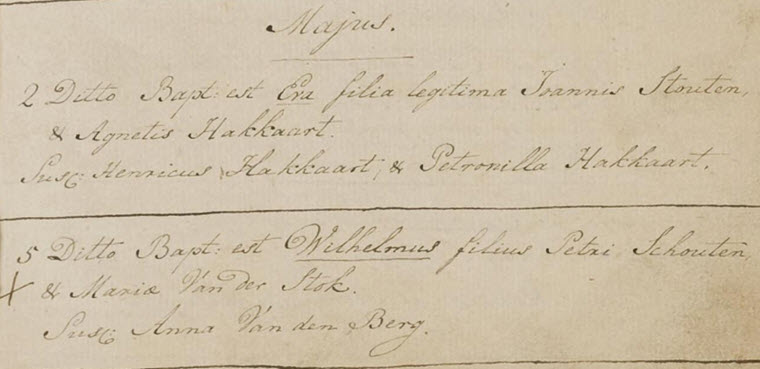 Majus.
2 Ditto Bapt: est Eva filia legitima Joannis Stouten,
& Agnetis Hakkaart.
Susc: Henricus Hakkaart, & Petronilla Hakkaart.
5 Ditto Bapt: est Wilhelmus filius Petri Schouten,
X & Mariæ Van der Stok.
Susc: Anna Van den Berg.